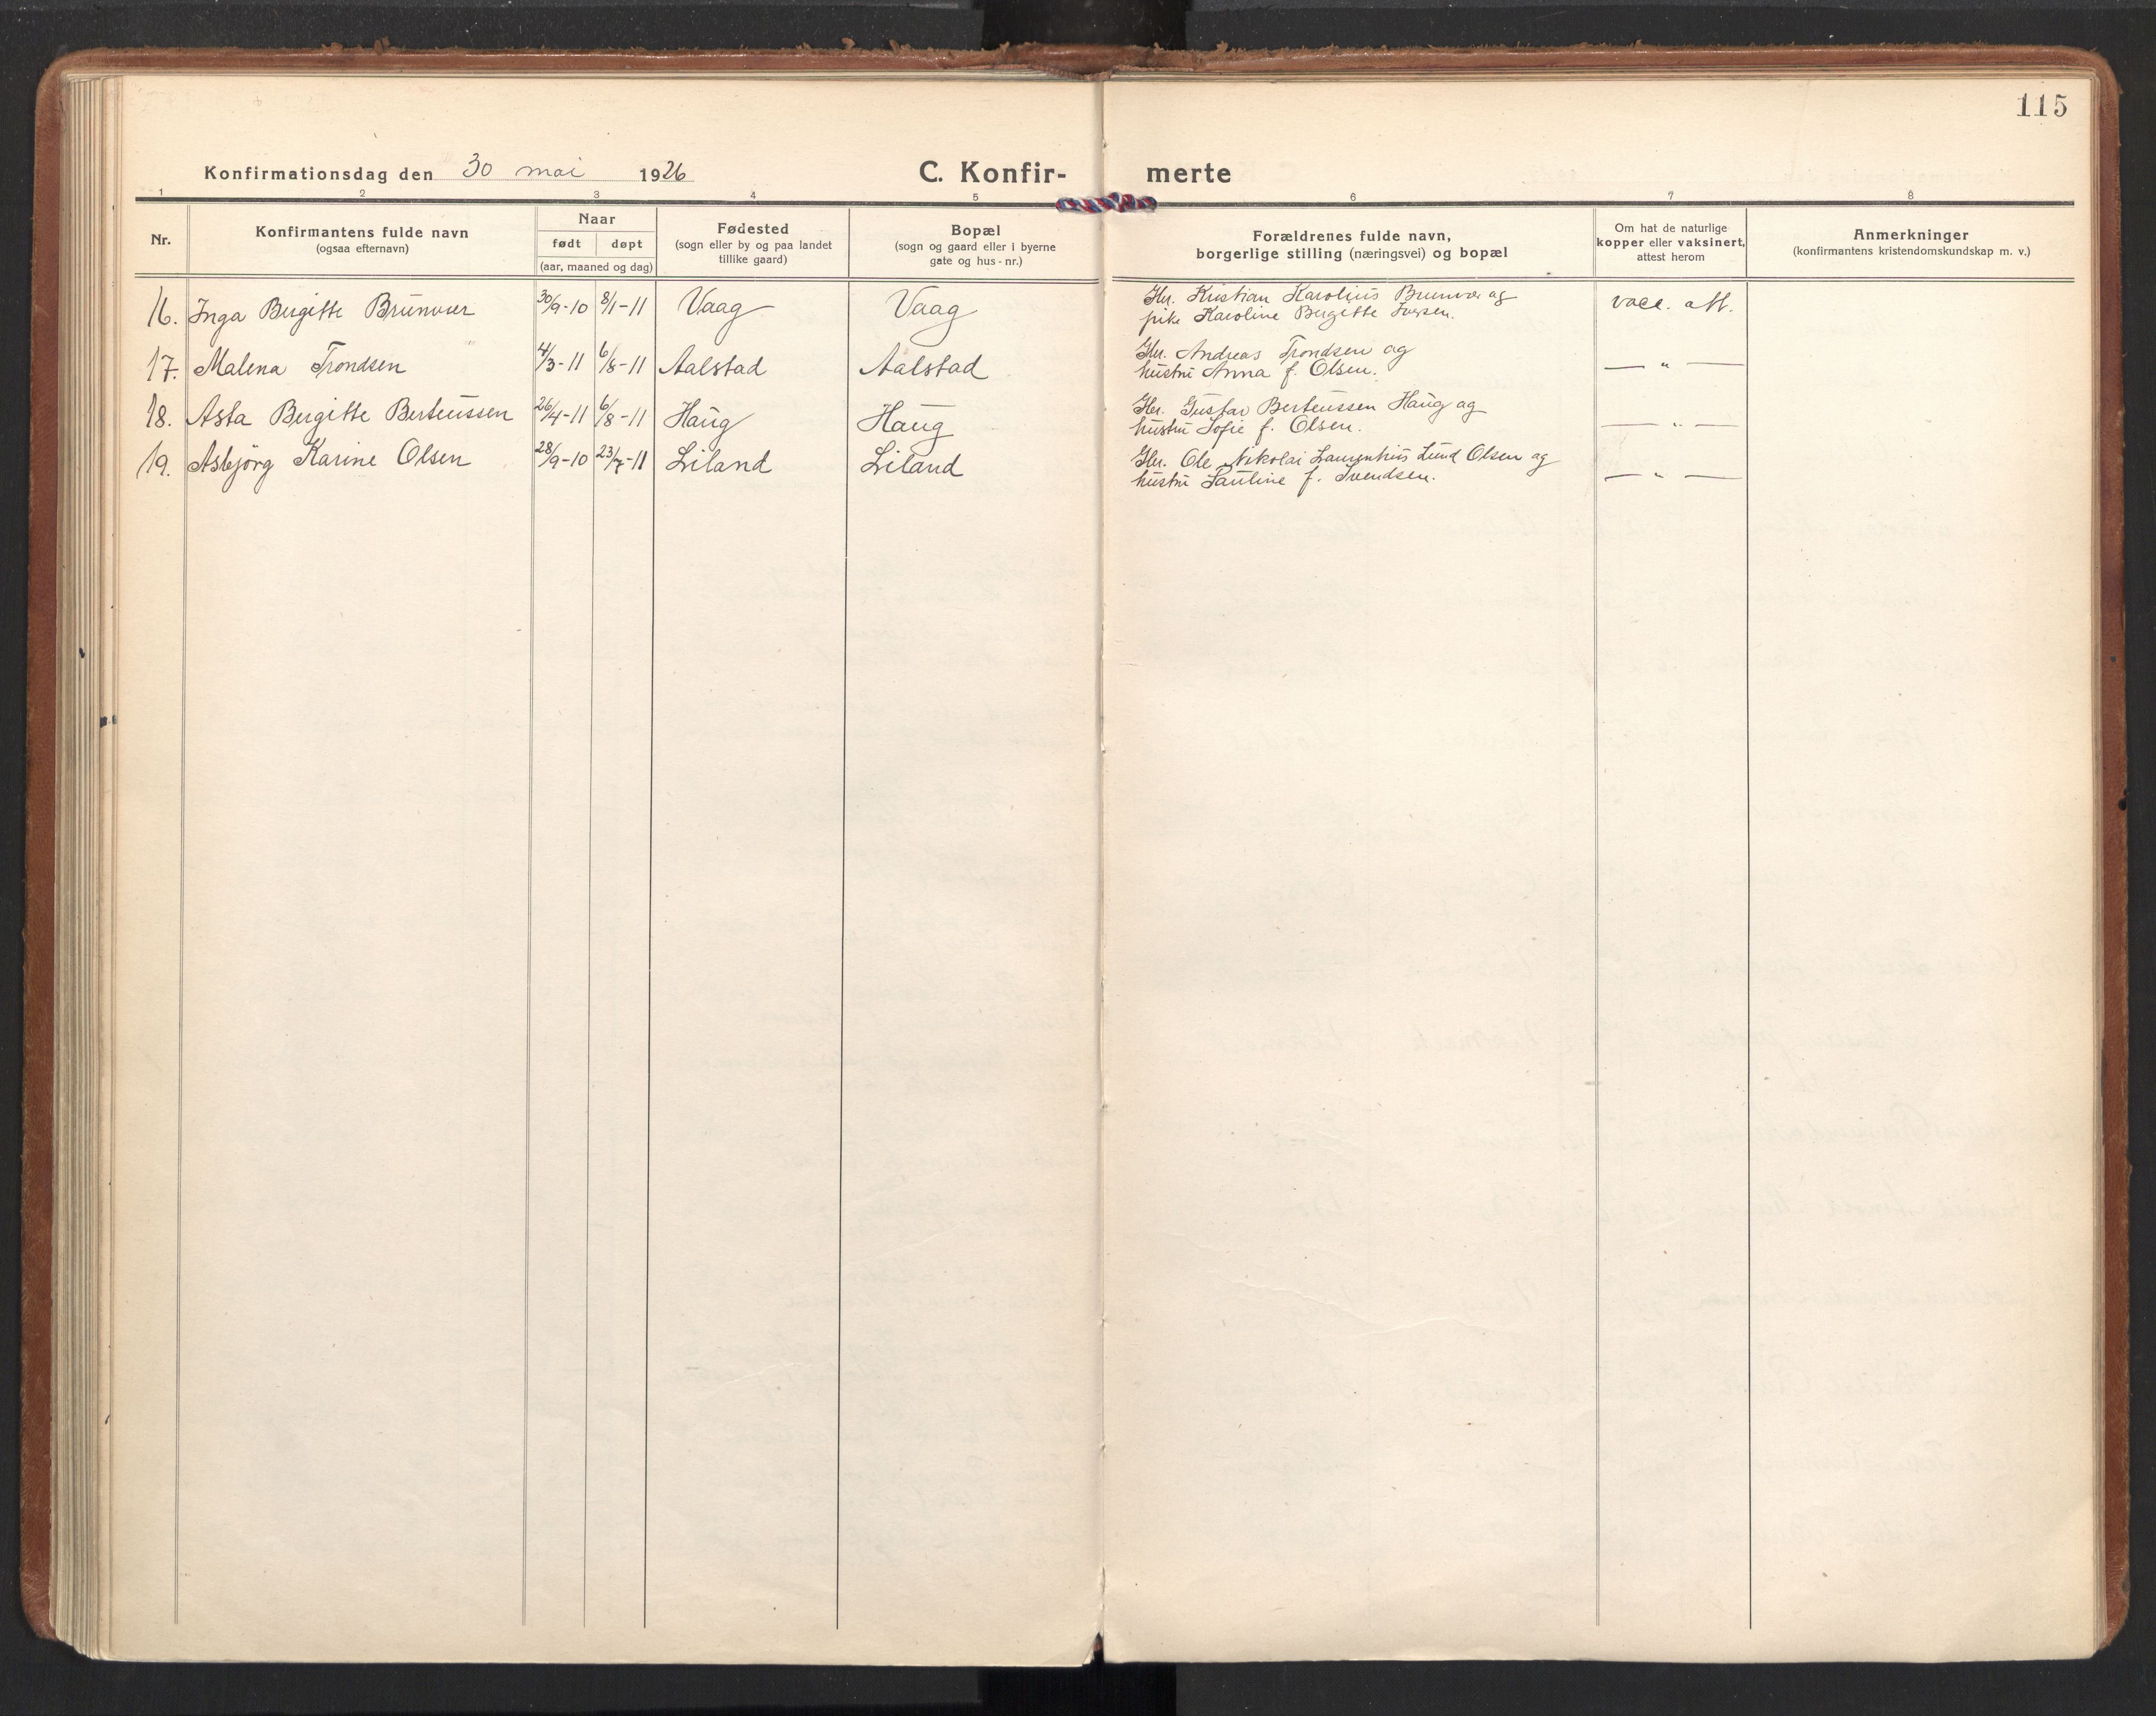 115
Konfirmationsdag den 30 mai 1926 C. Konfir- merte
1 2 3 4 5 6 7 8
Nr.
Konfirmantens fulde navn
(ogsaa efternavn)
Naar
født døpt
(aar, maaned og dag)
Fødested
(sogn eller by og paa landet
tillike gaard)
Bopæl
(sogn og gaard eller i byerne
gate og hus-nr.)
Forældrenes fulde navn,
borgerlige stilling (næringsvei) og bopæl
Om hat de naturlige
kopper eller vaksinert,
attest herom
Anmerkninger
(konfirmantens kristendomskundskap m. v.)
16. Inga Bergitte Brunvær 30/9-10 8/1-11 Vaag Vaag Gbr. Kristian Karolius Brunvær og vacc. att.
pike Karoline Bergitte Iversen.
17. Malena Trondsen 4/3-11 6/8-11 Aalstad Aalstad Gbr. Andreas Trondsen og
hustru Anna f. Olsen. — " —
18. Asta Bergitte Berteussen 26/4-11 6/8-11 Haug Haug Gbr. Gustav Berteussen Haug og
hustru Sofie f. Olsen. — " —
19. Asbjörg Karine Olsen 28/9-10 23/7-11 Liland Liland Gbr. Ole Nikolai Laurentius Lund Olsen og
hustru Pauline f. Svendsen. — " —